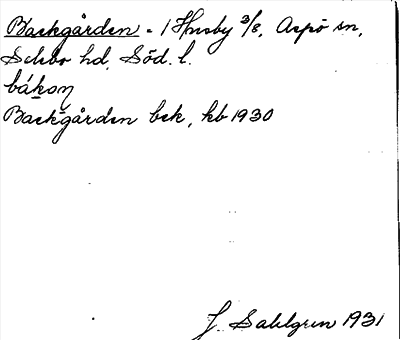 Backgården = 1 Husby 3/8, Aspö sn,
Selebo hd, Söd. l.
båkaɳ
Backgården bek, kb 1930
J. Sahlgren 1931